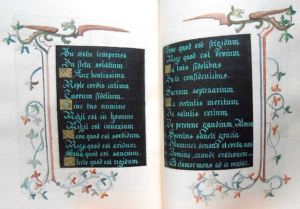 In æstu temperies
In fletu solatium
O lux beatissima
Reple cordis intima
Tuorum fidelium.
Sine tuo numine
Nihil est in homine
Nihil est innoxium
Lava quod est sordidum
Riga quod est aridum
Sana quod est saucium
Flecte quod est rigidum
Fove quod est frigidum
Rege quod est devium
Da tuis fidelibus
In te confidentibus.
Sacrum septenarium
Da virtutis meritum
Da salutis exitum
Da perenne gaudium. Amen
Spiritus sancti gratia
sensus et corda
Domine, exaudi orationem
Et clamor meus ad te veniat.